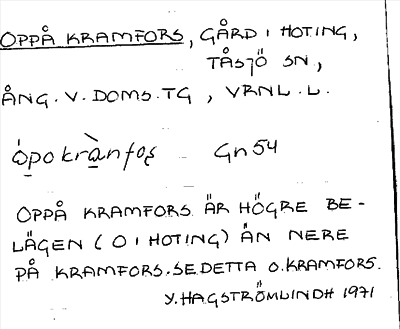 OPPÅ KRAMFORS, GÅRD I HOTING,
TÅSJÖ SN,
ÅNG. V. DOMS. TG, VRNL. L.
òpokrànfoʂ Gn 54
OPPÅ KRAMFORS ÄR HÖGRE BE-
LÄGEN (O I HOTING) ÄN NERE
PÅ KRAMFORS. SE DETTA O. KRAMFORS.
Y. HAGSTRÖMLINDH 1971